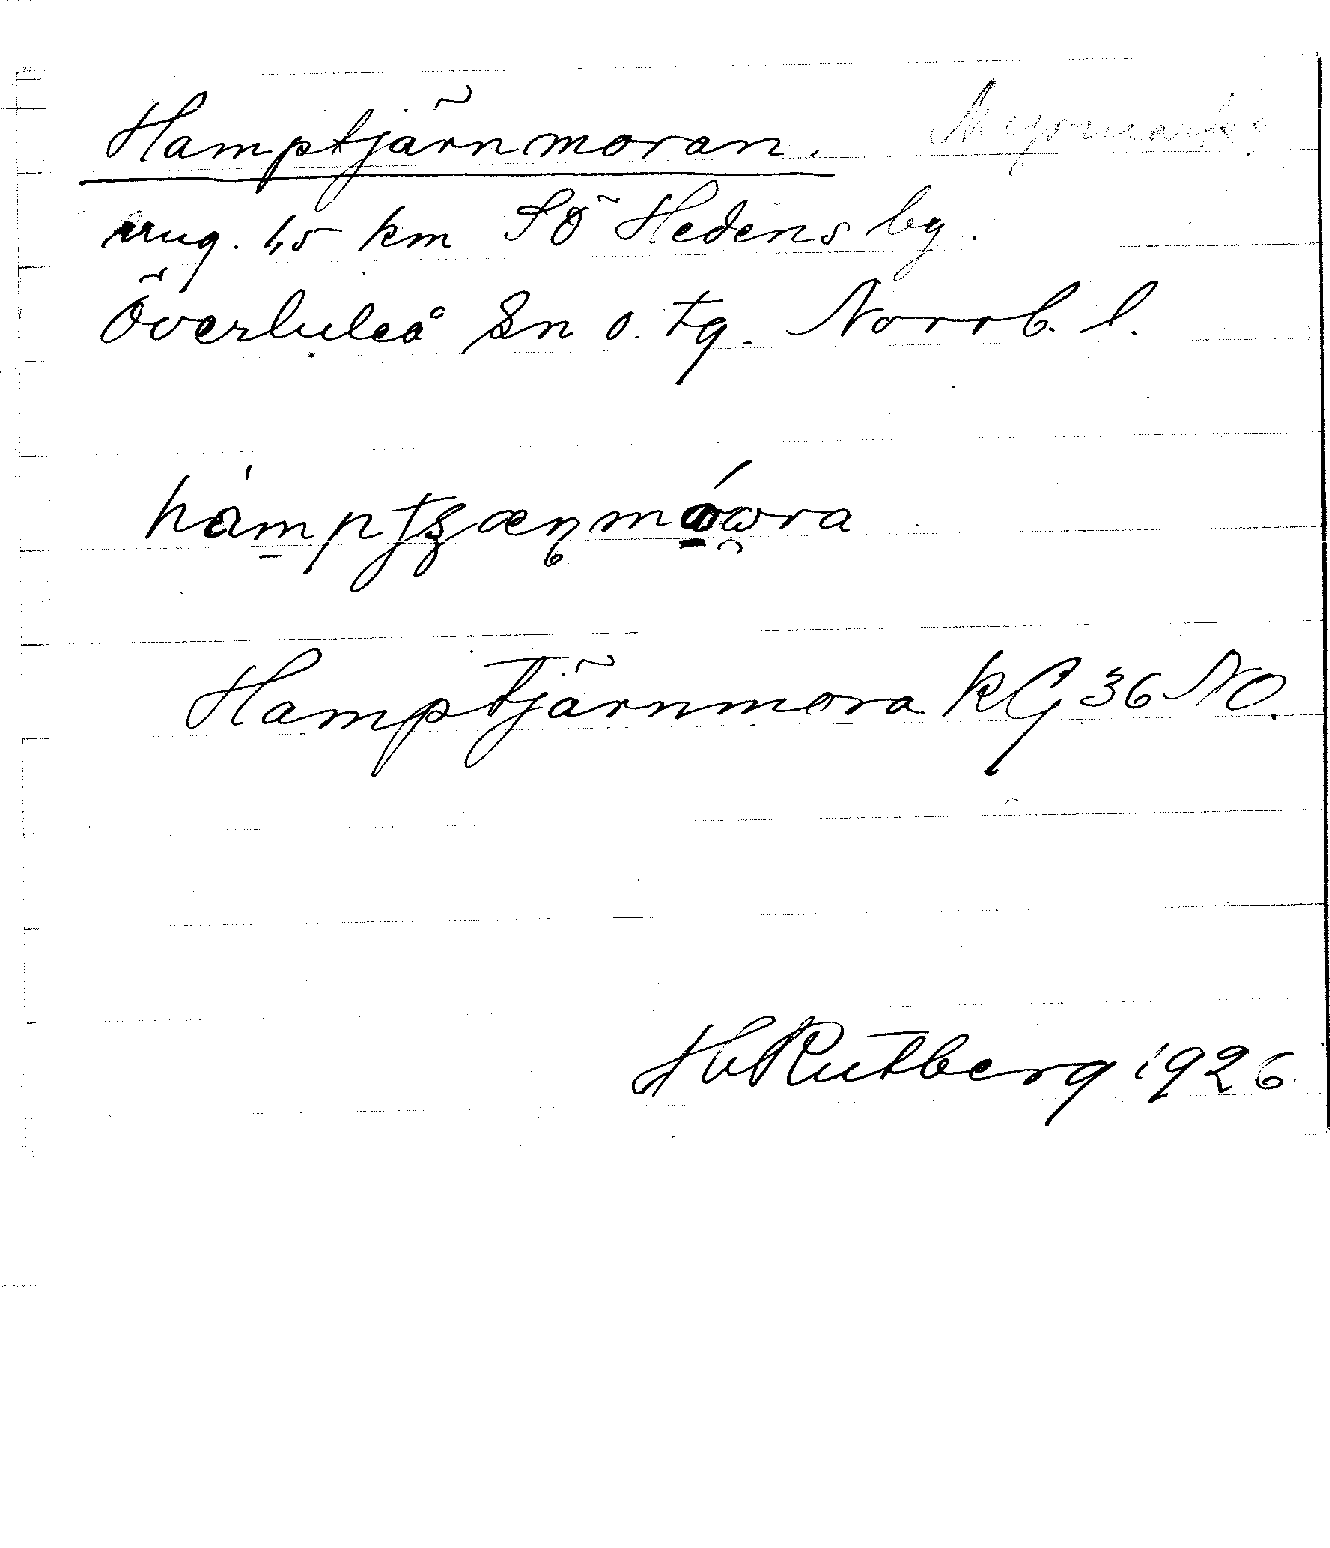 Hamptjärnmoran.
ung. 1,5 km SÖ Hedens by.
Överluleå sn o. tg. Norrb. l.
hàmptʂæɳmóωra
Hamptjärnmora KG 36 NO.
HVRutberg 1926